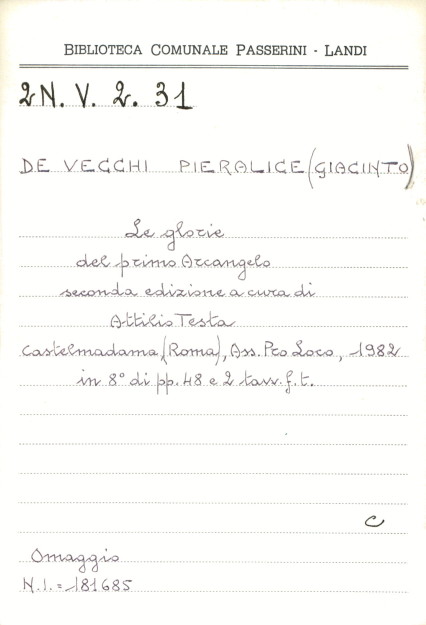 BIBLIOTECA COMUNALE PASSERINI - LANDI
2N. V. 2. 31
DE VECCHI PIERALICE (GIACINTO)
Le glorie
del primo Arcangelo
seconda edizione a cura di
Attilio Testa
Castelmadama (Roma), Ass. Pro Loco, 1982
in 8° di pp. 48 e 2 tavv. f. t.
C
Omaggio
N.I. = 181685